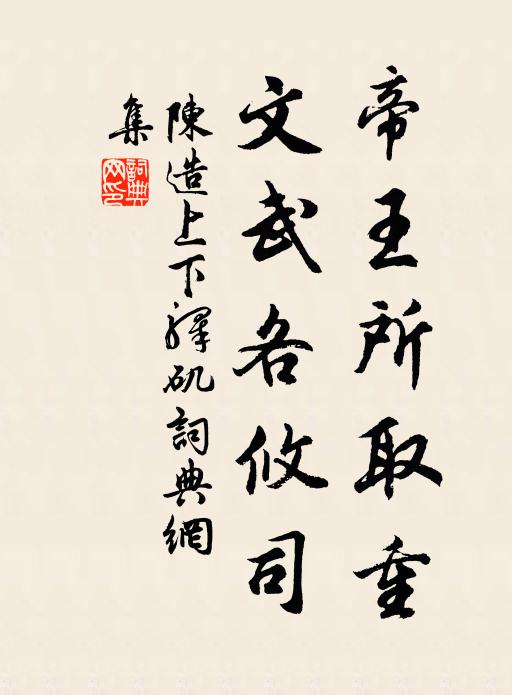 帝王所取重
文武各攸司
陳造上下釋矶詞典網
集
詞典網印